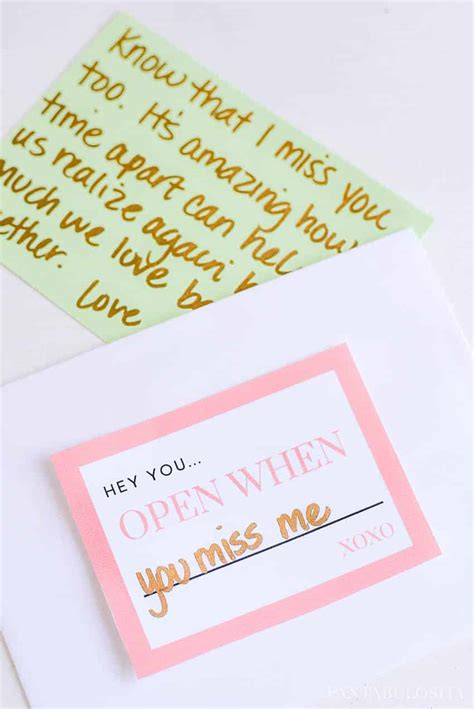 Know that I miss you
too. It's amazing how
time apart can hel
us realize again h
much we love be
ether.
Love
HEY YOU...
OPEN WHEN
you miss me
XOXO